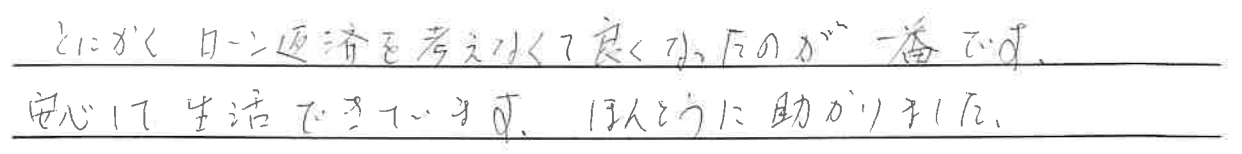 とにかくローン返済を考えなくて良くなったのが一番です。
安心して生活できています。ほんとうに助かりました。